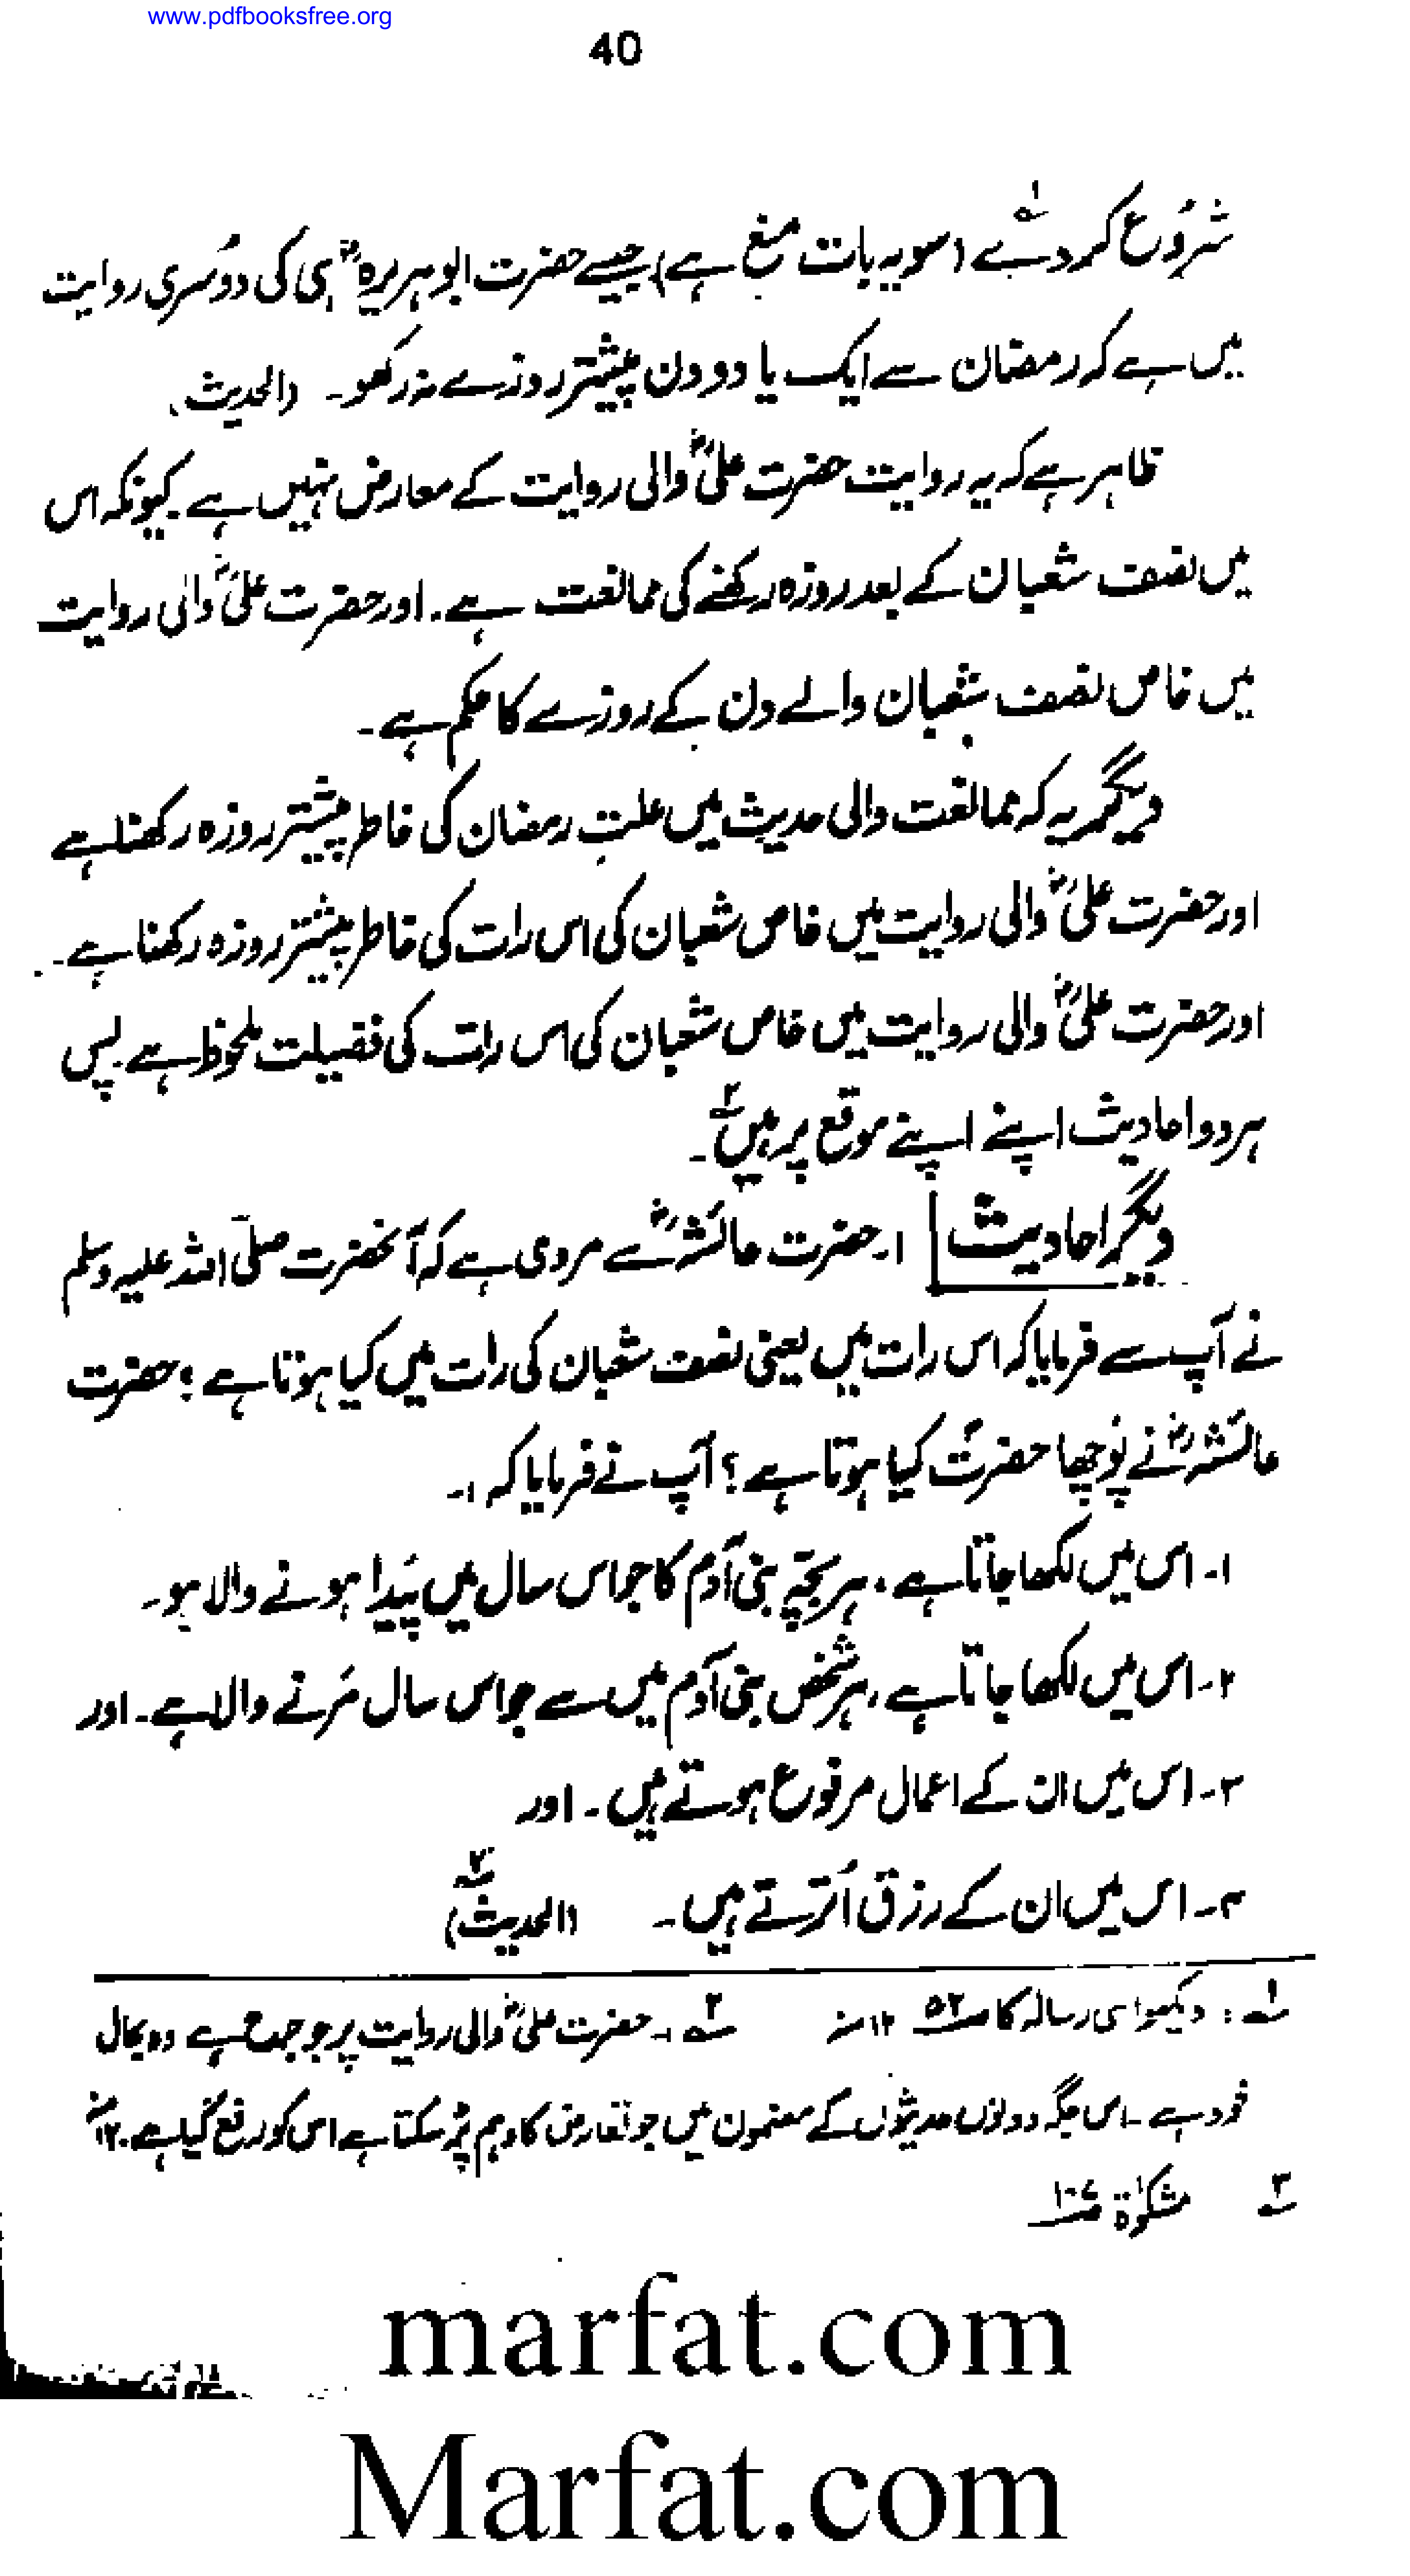 www.pdfbooksfree.org
40
شرُوع کر دے۱؎ (سو یہ بات منع ہے) جیسے حضرت ابو ہریرہؓ ہی کی دُوسری روایت
میں ہے کہ رمضان سے ایک یا دو دن پیشتر روزے نہ رکھو۔ (الحدیث)
ظاہر ہے کہ یہ روایت حضرت علیؓ والی روایت کے معارض نہیں ہے۔ کیونکہ اس
میں نصف شعبان کے بعد روزہ رکھنے کی ممانعت ہے۔ اور حضرت علیؓ والی روایت
میں خاص نصف شعبان والے دن کے روزے کا حکم ہے۔
دیگر یہ کہ ممانعت والی حدیث میں علتِ رمضان کی خاطر پیشتر روزہ رکھنا ہے
اور حضرت علیؓ والی روایت میں خاص شعبان کی اس رات کی خاطر پیشتر روزہ رکھنا ہے۔
اور حضرت علیؓ والی روایت میں خاص شعبان کی اس رات کی فضیلت ملحوظ ہے۔ پس
ہر دو احادیث اپنے اپنے موقع پر ہیں۲؎۔
دیگر احادیث ۱۔ حضرت عائشہؓ سے مروی ہے کہ آنحضرت صلی اللہ علیہ وسلم
نے آپ سے فرمایا کہ اس رات میں یعنی نصف شعبان کی رات میں کیا ہوتا ہے ؛ حضرت
عائشہؓ نے پُوچھا حضرتؐ کیا ہوتا ہے؟ آپ نے فرمایا کہ ۱۔
۱۔ اس میں لکھا جاتا ہے، ہر بچّہ بنی آدم کا جو اس سال میں پَیدا ہونے والا ہو۔
۲۔ اس میں لکھا جاتا ہے، ہر شخص بنی آدم میں سے جو اس سال مَرنے والا ہے۔ اور
۳۔ اس میں ان کے اعمال مرفوع ہوتے ہیں۔ اور
۴۔ اس میں ان کے رزق اُترتے ہیں۔ (الحدیث)۳؎
۱؎ : دیکھو اسی رسالہ کا ص۵۲ ۱۲ منہ ۲؎ ۱۔ حضرت علیؓ والی روایت پر جو جرح ہے وہ بحال
خود ہے۔ اس جگہ دونوں حدیثوں کے مضمون میں جو تعارض کا وہم پڑ سکتا ہے اس کو رفع کیا ہے۔ ۱۲ منہ
۳؎ مشکوٰۃ ص۱۰۷
marfat.com
Marfat.com